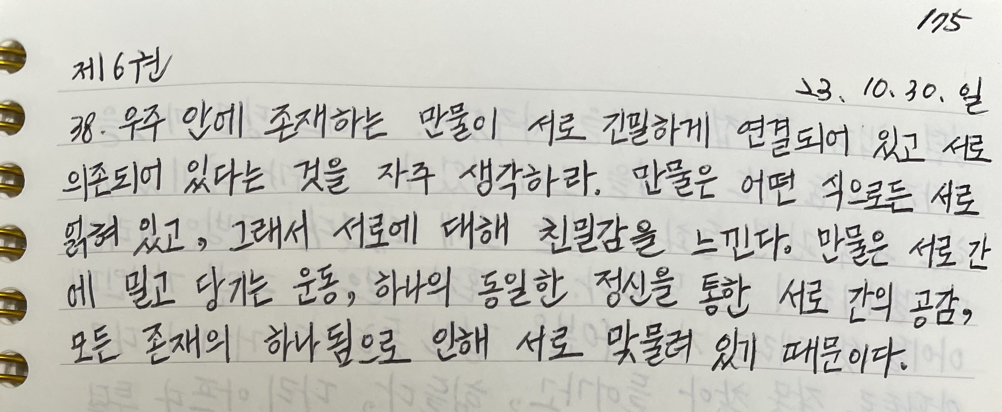 175
제6권
23. 10. 30. 일
38. 우주 안에 존재하는 만물이 서로 긴밀하게 연결되어 있고 서로
의존되어 있다는 것을 자주 생각하라. 만물은 어떤 식으로든 서로
얽혀 있고, 그래서 서로에 대해 친밀감을 느낀다. 만물은 서로 간
에 밀고 당기는 운동, 하나의 동일한 정신을 통한 서로 간의 공감,
모든 존재의 하나됨으로 인해 서로 맞물려 있기 때문이다.